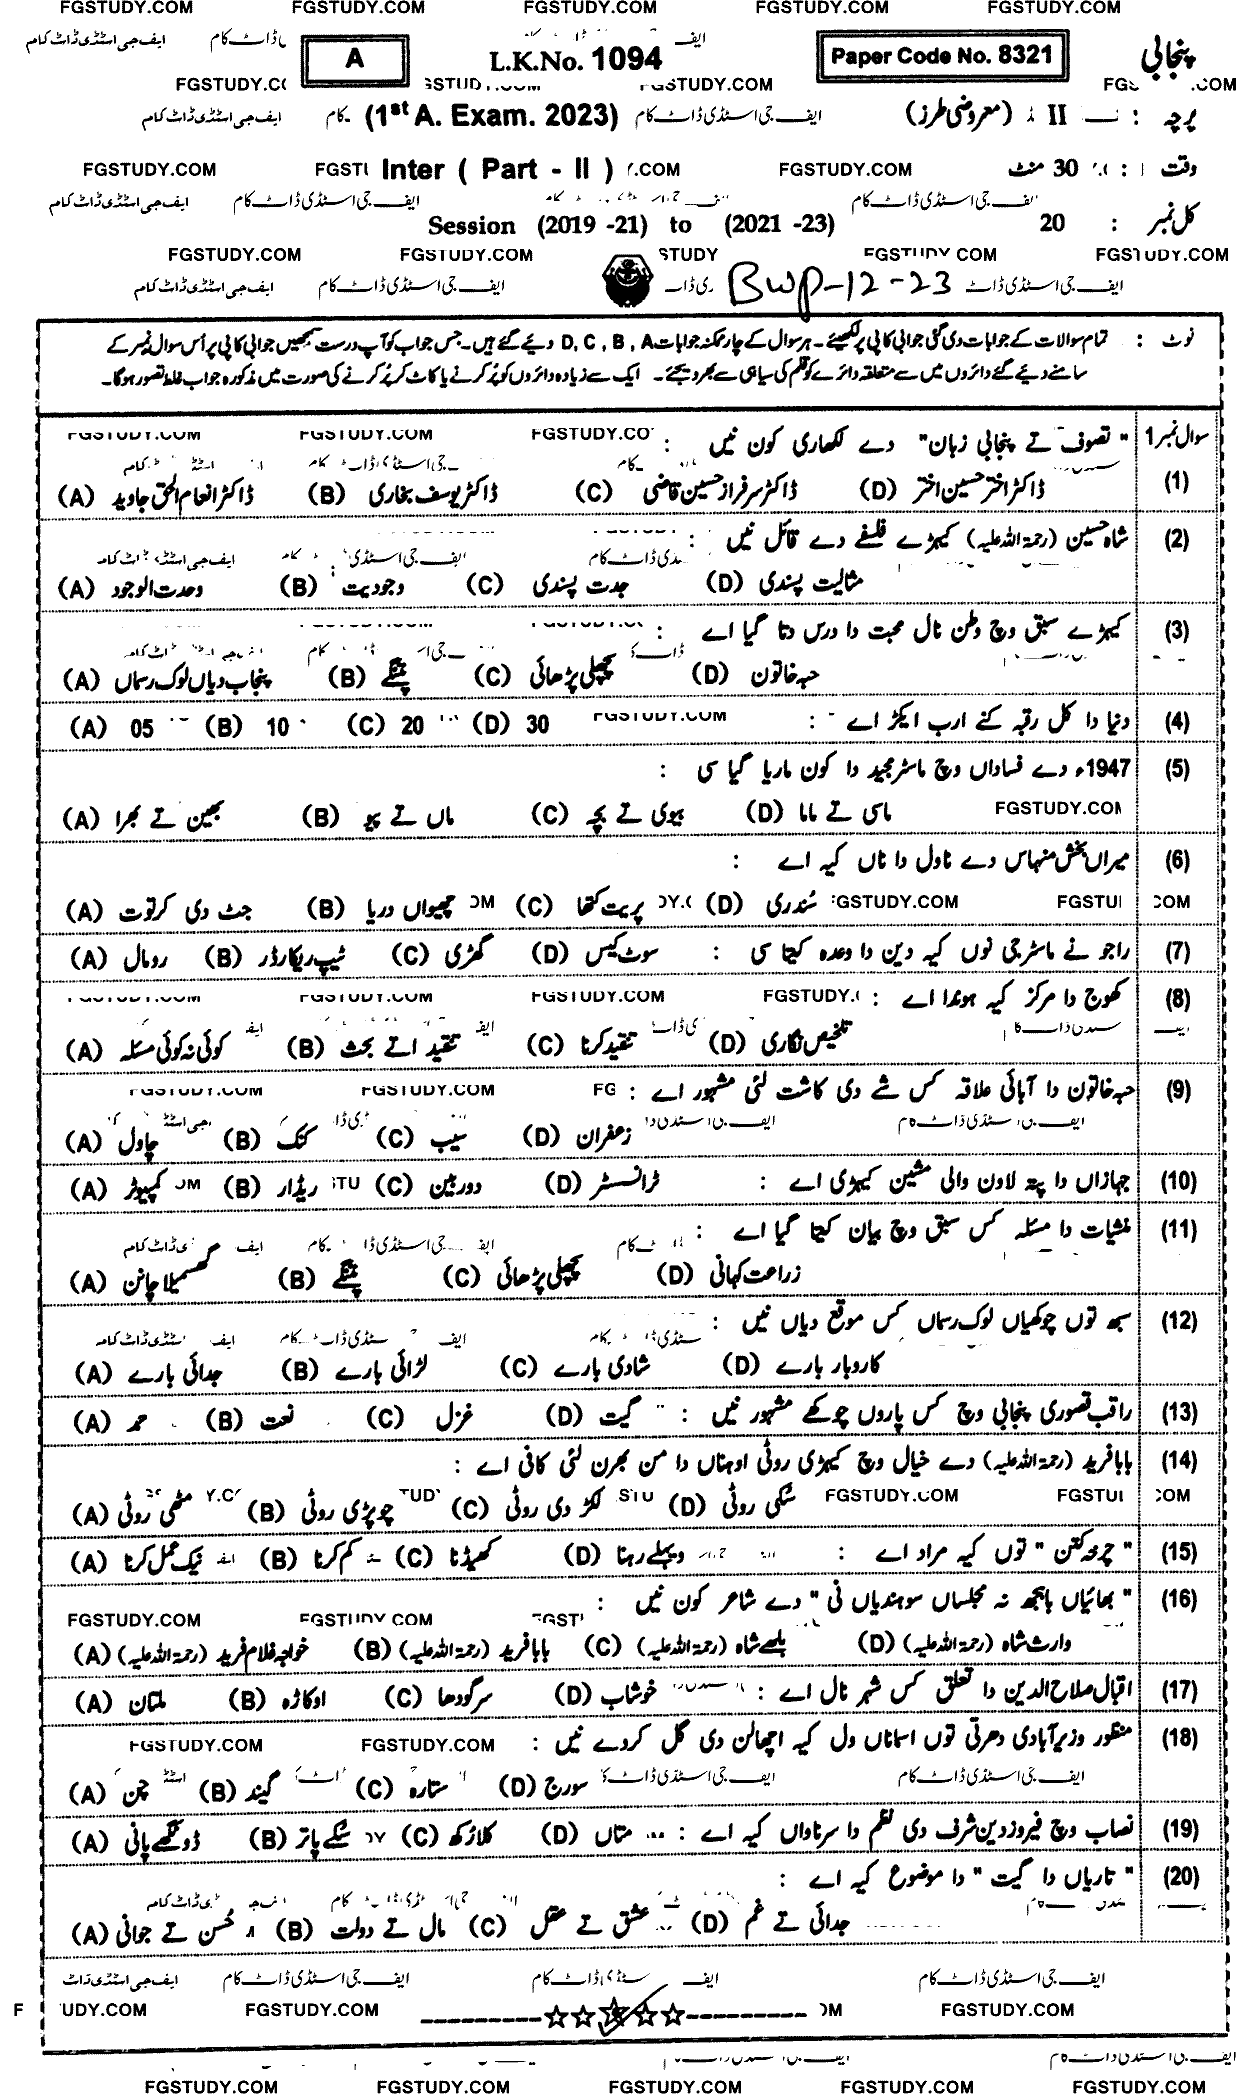 FGSTUDY.COM FGSTUDY.COM FGSTUDY.COM FGSTUDY.COM FGSTUDY.COM
پنجابی Paper Code No. 8321 L.K.No. 1094 A
پرچہ : II (معروضی طرز) (1st A. Exam. 2023)
وقت : 30 منٹ Inter ( Part - II )
کل نمبر : 20 Session (2019 -21) to (2021 -23)
FGSTUDY.COM FGSTUDY.COM STUDY FGSTUDY COM FGSTUDY.COM
BWP-12-23
نوٹ : تمام سوالات کے جوابات دی گئی جوابی کاپی پر لکھیئے۔ ہر سوال کے چار ممکنہ جوابات D, C, B, A دیئے گئے ہیں۔ جس جواب کو آپ درست سمجھیں جوابی کاپی پر اُس سوال نمبر کے
سامنے دیئے گئے دائروں میں سے متعلقہ دائرے کو قلم کی سیاہی سے بھر دیجئے۔ ایک سے زیادہ دائروں کو پُر کرنے یا کاٹ کر پُر کرنے کی صورت میں مذکورہ جواب غلط تصور ہوگا۔
سوال نمبر 1 " تصوف تے پنجابی زبان" دے لکھاری کون نیں :
(1) (A) ڈاکٹر انعام الحق جاوید (B) ڈاکٹر یوسف بخاری (C) ڈاکٹر سرفراز حسین قاضی (D) ڈاکٹر اختر حسین اختر
(2) شاہ حسین (رحمۃ اللہ علیہ) کیہڑے فلسفے دے قائل نیں :
(A) وحدت الوجود (B) وجودیت (C) جدت پسندی (D) مثالیت پسندی
(3) کیہڑے سبق وچ وطن نال محبت دا درس دتا گیا اے :
(A) پنجاب دیاں لوک رسماں (B) پتنگے (C) پچھلی پڑھائی (D) حبہ خاتون
(4) دنیا دا کل رقبہ کنے ارب ایکڑ اے : (A) 05 (B) 10 (C) 20 (D) 30
(5) 1947ء دے فساداں وچ ماسٹر مجید دا کون ماریا گیا سی :
(A) بھین تے بھرا (B) ماں تے پیو (C) بیوی تے بچہ (D) ماسی تے ماما
(6) میراں بخش منہاس دے ناول دا ناں کیہ اے :
(A) جٹ دی کرتوت (B) چھیواں دریا (C) پریت کتھا (D) سُندری
(7) راجو نے ماسٹر جی نوں کیہ دین دا وعدہ کیتا سی : (A) رومال (B) ٹیپ ریکارڈر (C) گھڑی (D) سوٹ کیس
(8) کھوج دا مرکز کیہ ہوندا اے :
(A) کوئی نہ کوئی مسئلہ (B) تنقید اتے بحث (C) تنقید کرنا (D) تلخیص نگاری
(9) حبہ خاتون دا آبائی علاقہ کس شے دی کاشت لئی مشہور اے :
(A) چاول (B) کنک (C) سیب (D) زعفران
(10) جہازاں دا پتہ لاون والی مشین کیہڑی اے : (A) کمپیوٹر (B) ریڈار (C) دوربین (D) ٹرانسسٹر
(11) منشیات دا مسئلہ کس سبق وچ بیان کیتا گیا اے :
(A) گھسمیلا چانن (B) پتنگے (C) پچھلی پڑھائی (D) زراعت کہانی
(12) سبھ توں چوکھیاں لوک رسماں کس موقع دیاں نیں :
(A) جدائی بارے (B) لڑائی بارے (C) شادی بارے (D) کاروبار بارے
(13) راقب قصوری پنجابی وچ کس پاروں چوکھے مشہور نیں : (A) حمد (B) نعت (C) غزل (D) گیت
(14) بابا فرید (رحمۃ اللہ علیہ) دے خیال وچ کیہڑی روٹی اوہناں دا من بھرن لئی کافی اے :
(A) مٹھی روٹی (B) چوپڑی روٹی (C) لکڑ دی روٹی (D) سُکی روٹی
(15) " چرخہ کتن " توں کیہ مراد اے : (A) نیک عمل کرنا (B) کم کرنا (C) کھیڈنا (D) ویہلے رہنا
(16) " بھائیاں باہجھ نہ مجلساں سوہندیاں نی " دے شاعر کون نیں :
(A) خواجہ غلام فرید (رحمۃ اللہ علیہ) (B) بابا فرید (رحمۃ اللہ علیہ) (C) بلھے شاہ (رحمۃ اللہ علیہ) (D) وارث شاہ (رحمۃ اللہ علیہ)
(17) اقبال صلاح الدین دا تعلق کس شہر نال اے : (A) ملتان (B) اوکاڑہ (C) سرگودھا (D) خوشاب
(18) منظور وزیرآبادی دھرتی توں اسماناں ول کیہ اچھالن دی گل کردے نیں :
(A) چن (B) گیند (C) ستارہ (D) سورج
(19) نصاب وچ فیروز دین شرف دی نظم دا سرناواں کیہ اے : (A) ڈونگھے پانی (B) سُکے پاتر (C) کلا رُکھ (D) متاں
(20) " تاریاں دا گیت " دا موضوع کیہ اے :
(A) حسن تے جوانی (B) مال تے دولت (C) عشق تے عقل (D) جدائی تے غم
FGSTUDY.COM FGSTUDY.COM
FGSTUDY.COM FGSTUDY.COM FGSTUDY.COM FGSTUDY.COM FGSTUDY.COM